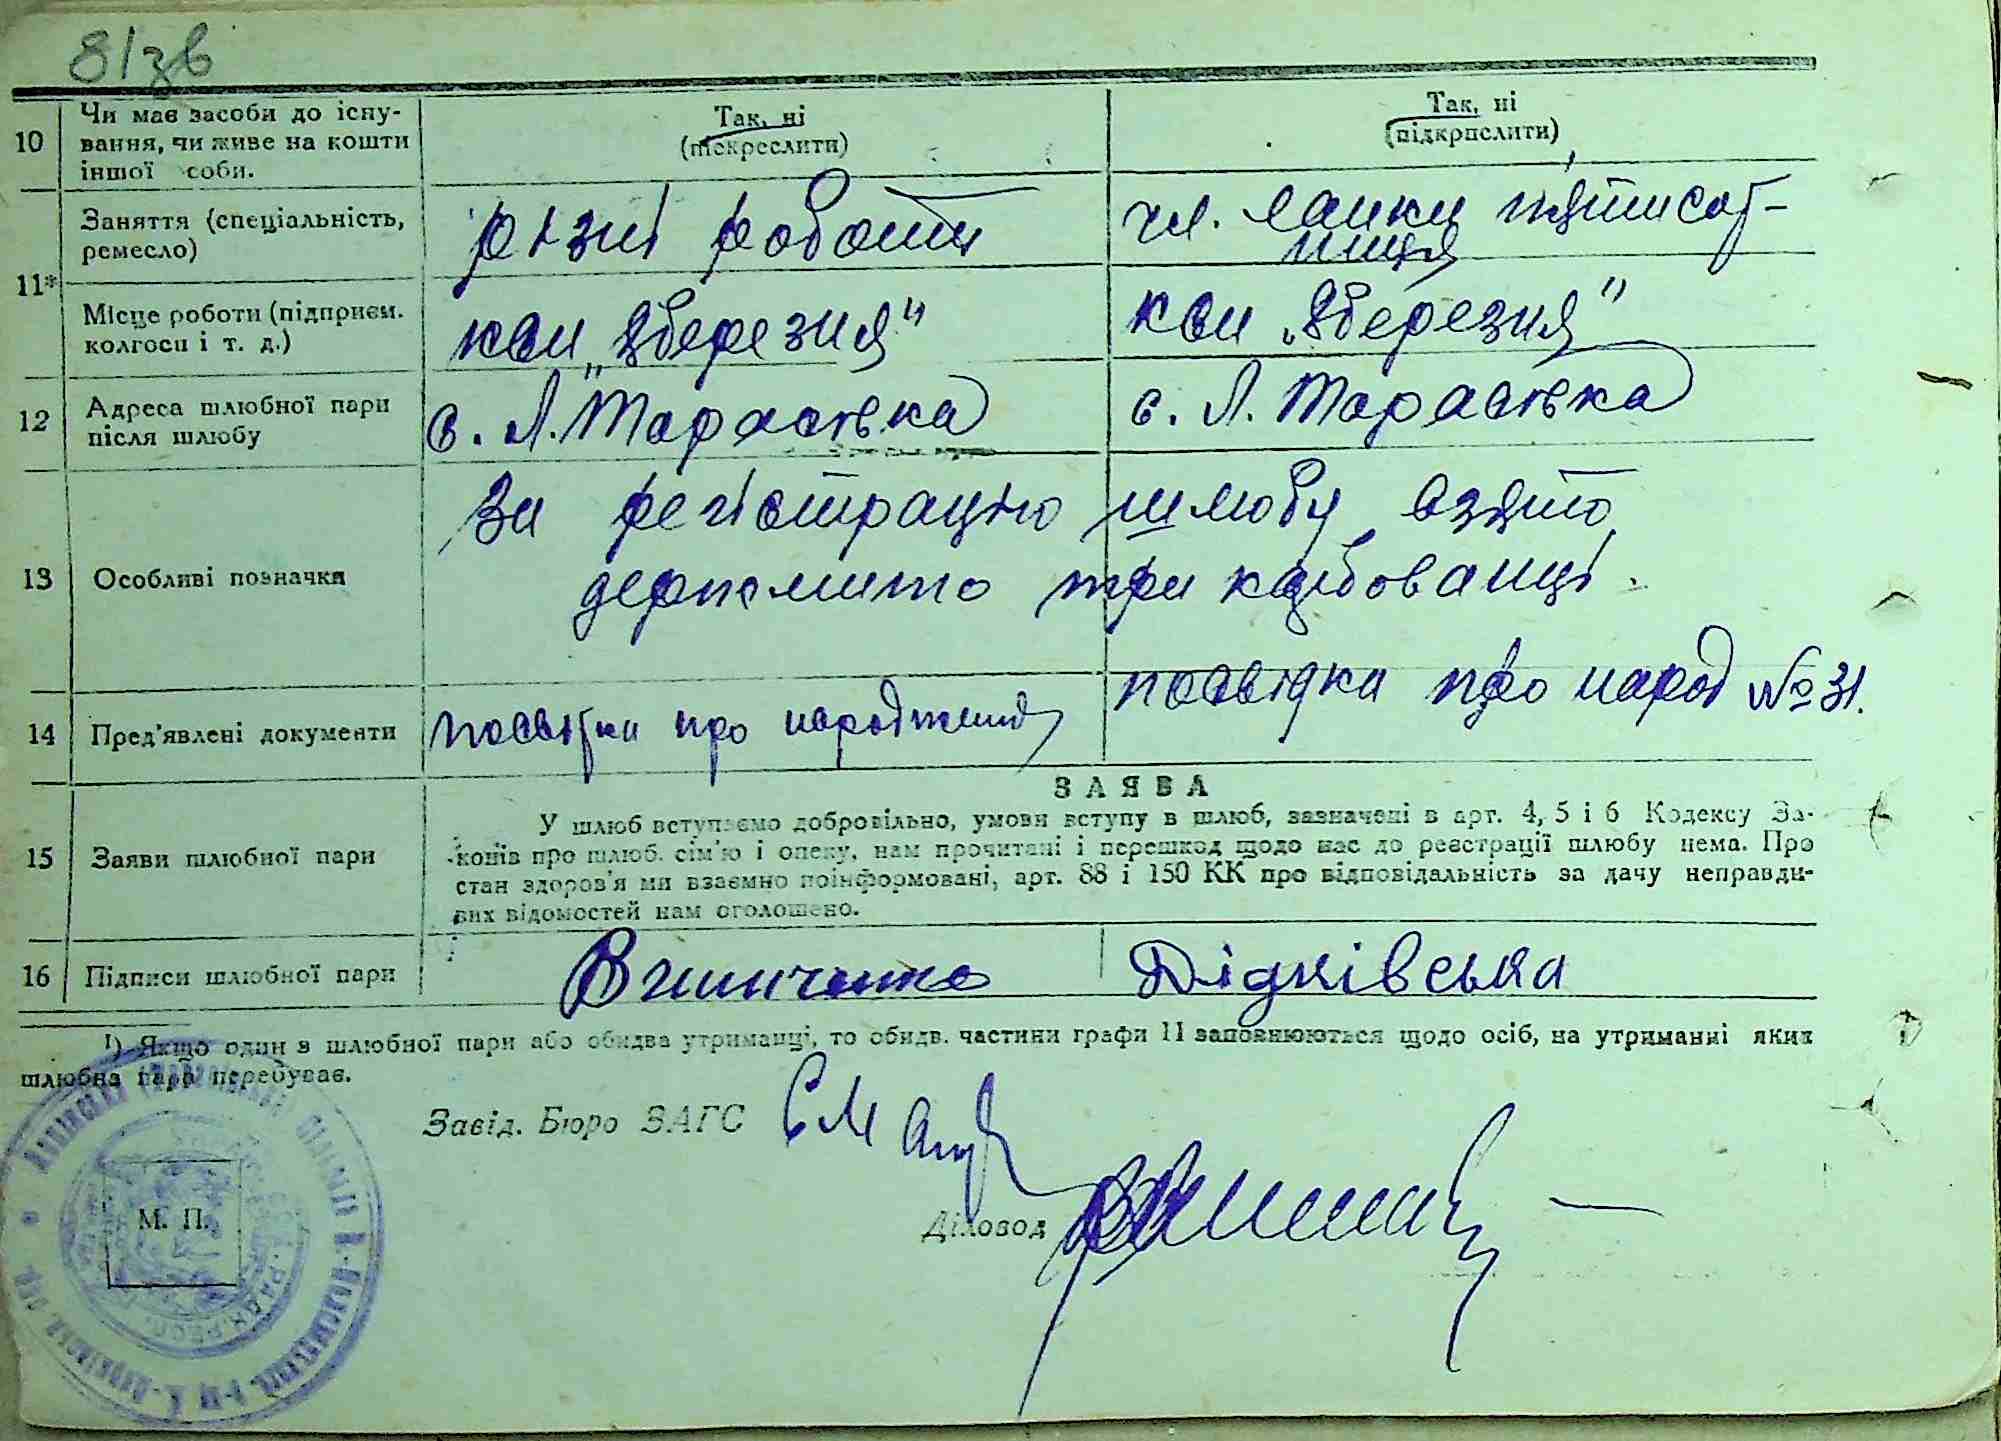 81зв
10 Чи має засоби до існу-
вання, чи живе на кошти
іншої соби.
Так, ні
(підкреслити)
Так, ні
(підкреслити)
11* Заняття (спеціальність,
ремесло)
різні роботи
чл. ланки п'ятисот-
ниця
Місце роботи (підприєм.
колгосп і т. д.)
кол „8 березня"
кол „8 березня"
12 Адреса шлюбної пари
після шлюбу
с. Л. Тарасівка
с. Л. Тарасівка
13 Особливі позначки
За регістрацію шлюбу взято
держмито три карбованці.
14 Пред'явлені документи
посвідка про народження
посвідка про народ №31.
15 Заяви шлюбної пари
ЗАЯВА
У шлюб вступаємо добровільно, умови вступу в шлюб, зазначені в арт. 4, 5 і 6 Кодексу За-
конів про шлюб. сім'ю і опеку, нам прочитані і перешкод щодо нас до реєстрації шлюбу нема. Про
стан здоров'я ми взаємно поінформовані, арт. 88 і 150 КК про відповідальність за дачу неправди-
вих відомостей нам оголошено.
16 Підписи шлюбної пари
Вінниченко
Дідківська
1) Якщо один з шлюбної пари або обидва утриманці, то обидв. частини графи 11 заповнюються щодо осіб, на утриманні яких
шлюбна пара перебуває.
Завід. Бюро ЗАГС
Діловод
М. П.